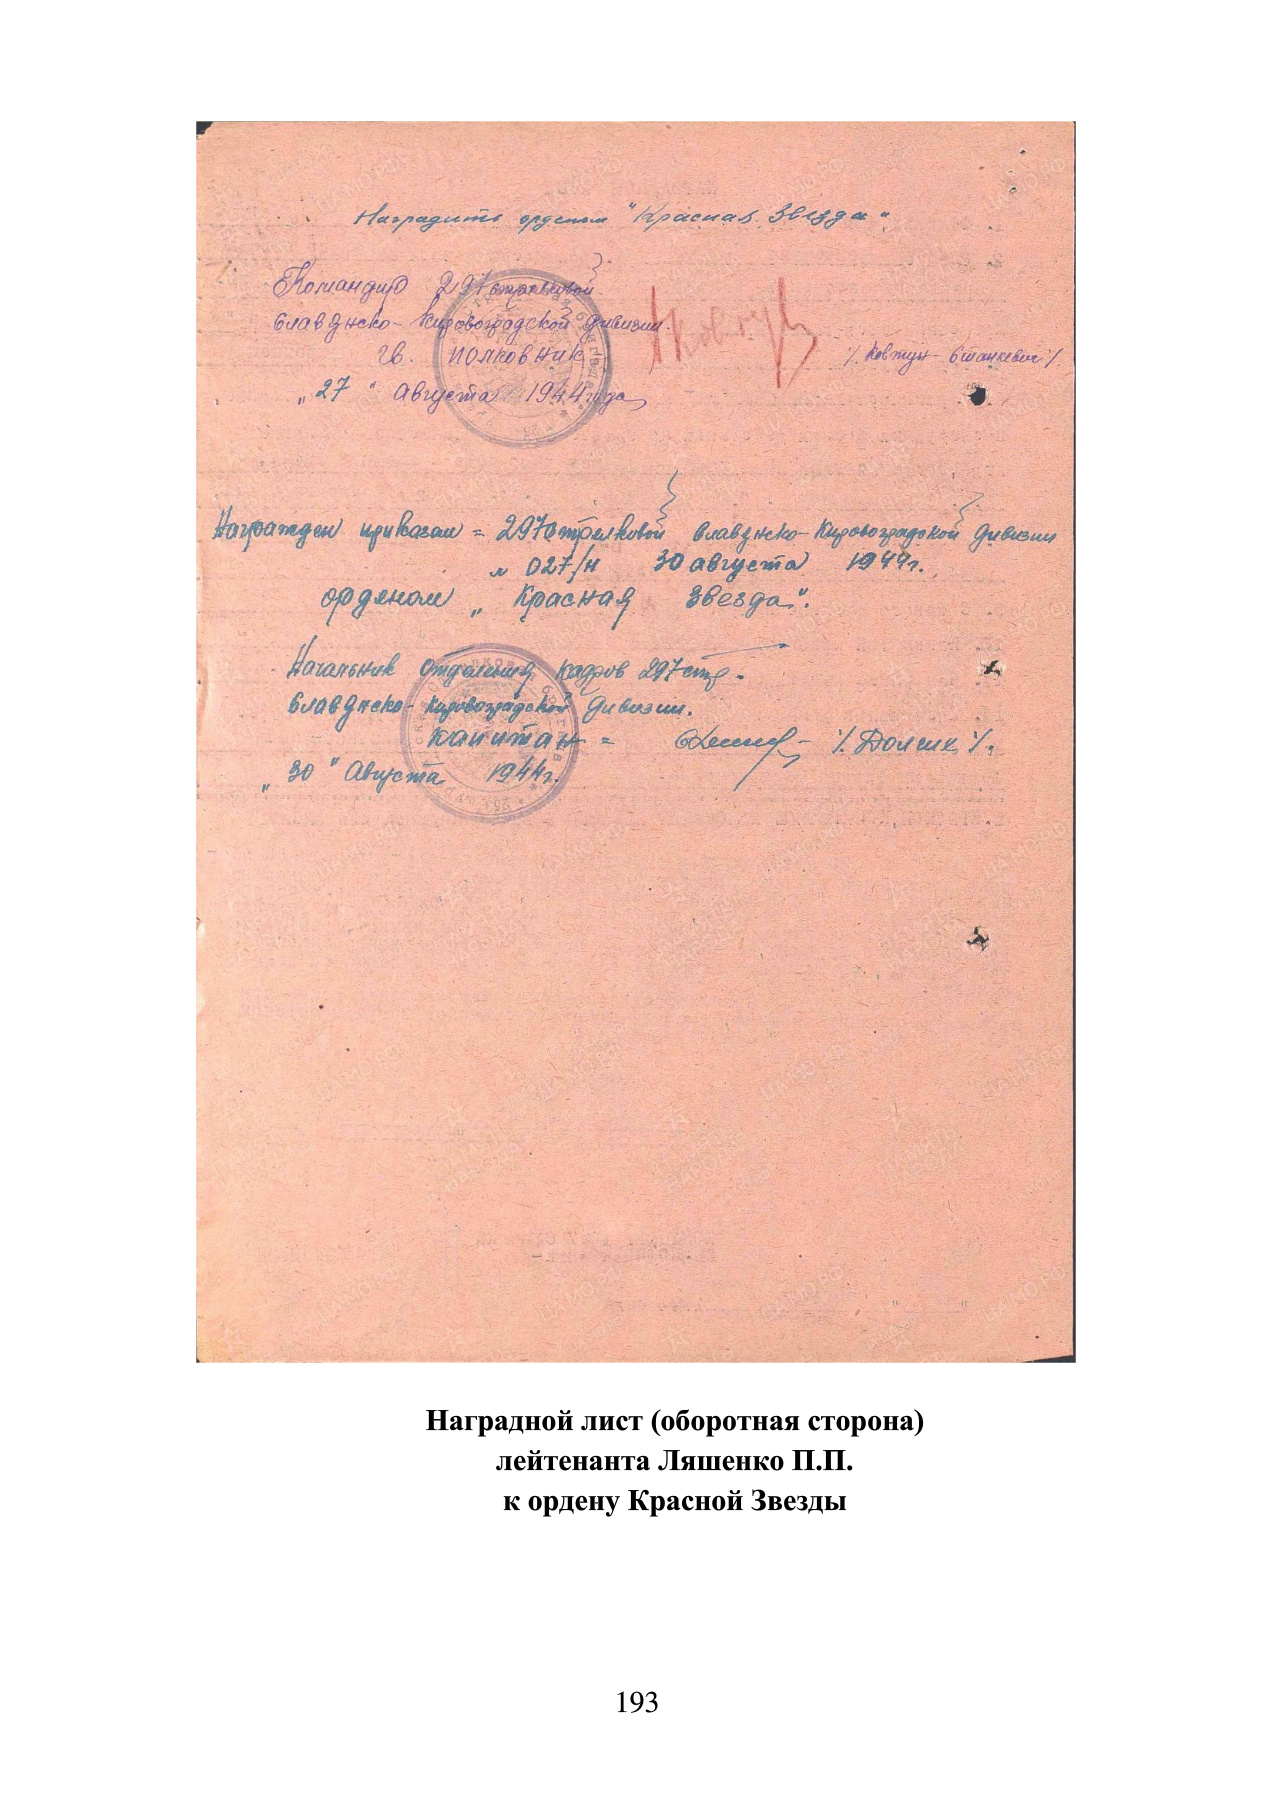 Наградить орденом "Красная Звезда"
Командир 297 стрелковой
Славянско-Кировоградской дивизии.
гв. полковник /Ковтун-Станкевич/.
"27" Августа 1944 года
Награжден приказом = 297 стрелковой Славянско-Кировоградской дивизии
№ 027/н 30 августа 1944г.
орденом "Красная Звезда".
Начальник отделения кадров 297 стр.
Славянско-Кировоградской дивизии.
капитан = /.Долшек/.
"30" Августа 1944г.
Наградной лист (оборотная сторона)
лейтенанта Ляшенко П.П.
к ордену Красной Звезды
193